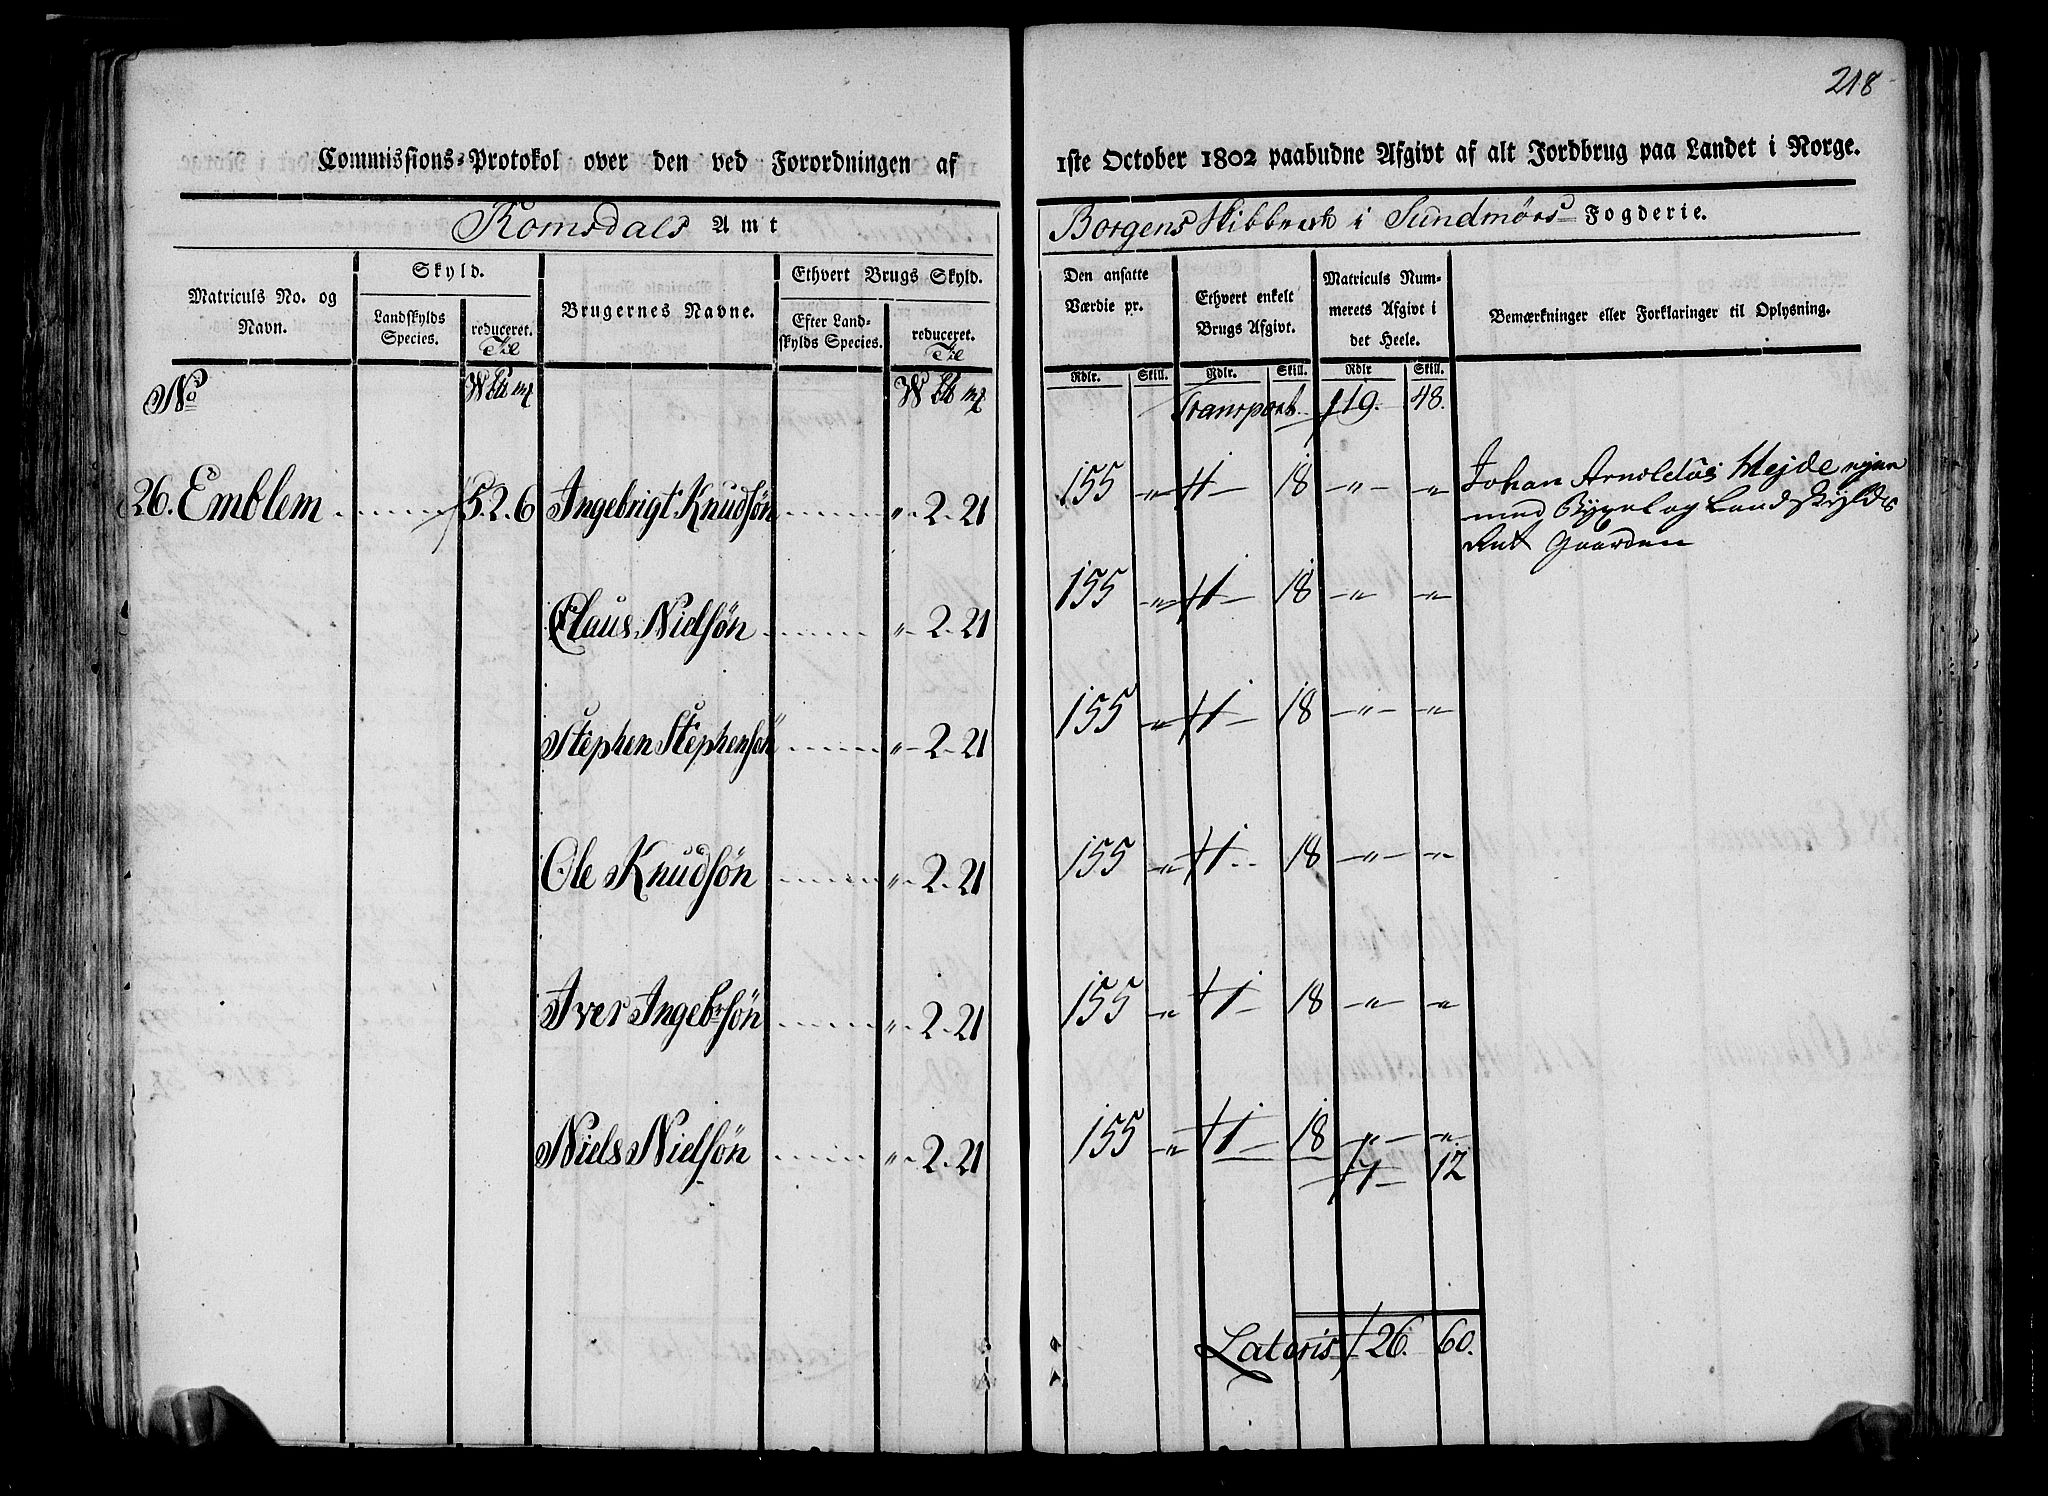 218
Commissions-Protokol over den ved Forordningen af 1ste October 1802 paabudne Afgivt af alt Jordbrug paa Landet i Norge.
Romsdals Amt Borgens Skibbrede i Sundmörs Fogderie.
Matriculs No. og Navn.
Skyld.
Landskylds Species.
reduceret.
Brugernes Navne.
Ethvert Brugs Skyld.
Efter Landskylds Species.
reduceret.
Den ansatte Værdie pr.
Ethvert enkelt Brugs Afgivt.
Matriculs Nummerets Afgivt i det Heele.
Bemærkninger eller Forklaringer til Oplysning.
Rdlr. Skill. Rdlr. Skill. Rdlr Skill.
No W W Transport 119. 48.
26. Emblem 5. 2. 6 Ingebrigt Knudsøn „ 2. 21 155 „ 1 18 „ „ Johan Arnoldus Hejde
med Bygsel og Landskylds
Gaarden
Claus Nielsøn „ 2. 21 155 „ 1 18 „ „
Stephen Stephensøn „ 2. 21 155 „ 1 18 „ „
Ole Knudsøn „ 2. 21 155 „ 1 18 „ „
Iver Ingebrsøn „ 2. 21 155 „ 1 18 „ „
Niels Nielsøn „ 2. 21 155 „ 1 18 „ „
7 12
Lateris 126. 60.